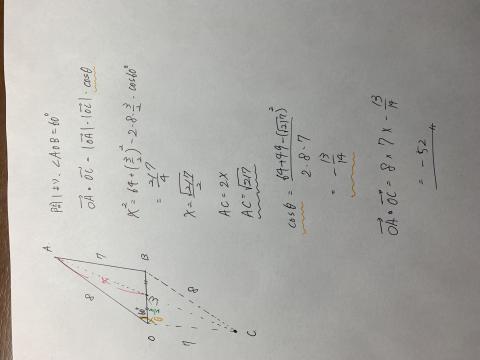 問1より、∠AOB=60°
OA・OC = |OA|・|OC|・cosθ
x² = 64+(3/2)² - 2・8・3/2・cos60°
= 217/4
x = √217/2
AC = 2x
AC = √217
cosθ = 64+49-(√217)²/2・8・7
= -13/14
OA・OC = 8×7×-13/14
= -52
A
8
7
x
60°
O
B
3
θ
7
8
C